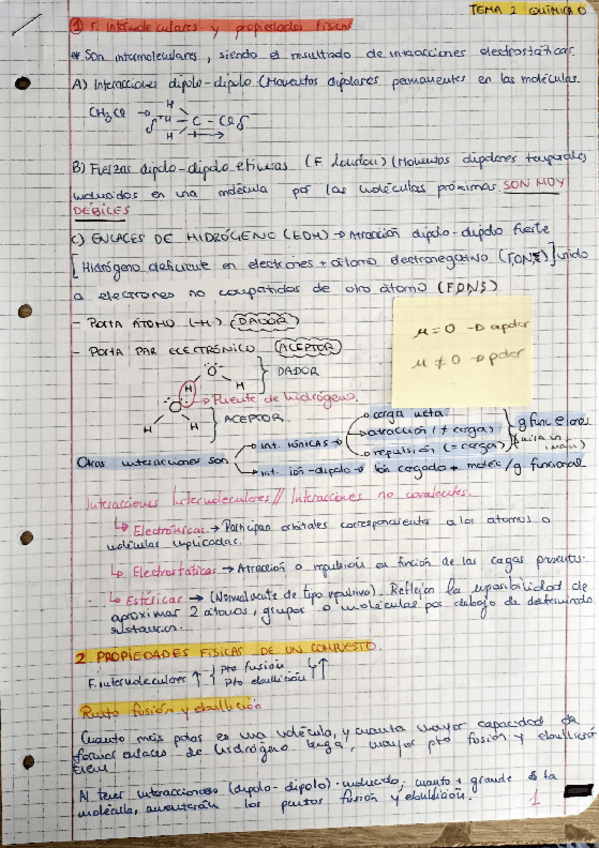 TEMA 2 QUÍMICA O
1 F. Intermoleculares y propiedades físicas
* Son intermoleculares, siendo el resultado de interacciones electrostáticas.
A) Interacciones dipolo-dipolo (Momentos dipolares permanentes en las moléculas.
CH3Cl → H
δ+H - C - Clδ-
H
B) Fuerzas dipolo-dipolo efímeras (F London) (Momentos dipolares temporales
inducidos en una molécula por las moléculas próximas. SON MUY
DÉBILES
C) ENLACES DE HIDRÓGENO (EDH) → Atracción dipolo-dipolo fuerte
[Hidrógeno deficiente en electrones + átomo electronegativo (F,O,N,S)] unido
a electrones no compartidos de otro átomo (FONS)
- PORTA ÁTOMO (-H) (DADOR)
- PORTA PAR ELECTRÓNICO (ACEPTOR)
μ = 0 → apolar
μ ≠ 0 → polar
O
H H } DADOR
→ Puente de hidrógeno.
O } ACEPTOR.
H H
Otras interacciones son
→ int. IÓNICAS →
→ carga neta
→ atracción (≠ carga)
→ repulsión (= carga)
} g funciones
→ int. ión-dipolo → Ión cargado + moléc/g funcional
Interacciones Intermoleculares // Interacciones no covalentes.
↳ Electrónicas. → Participan orbitales correspondientes a los átomos o
moléculas implicadas.
↳ Electrostáticas → Atracción o repulsión en función de las cargas presentes.
↳ Estéricas → (Normalmente de tipo repulsivo). Reflejan la imposibilidad de
aproximar 2 átomos, grupos o moléculas por debajo de determinada
distancia.
2. PROPIEDADES FÍSICAS DE UN COMPUESTO.
F. intermoleculares ↑ { Pto fusión
Pto ebullición } ↑
Punto fusión y ebullición
Cuanto más polar es una molécula, y cuanta mayor capacidad de
formar enlaces de hidrógeno tenga, mayor pto fusión y ebullición
Al tener interacciones (dipolo-dipolo)-inducido, cuanto + grande la
molécula, aumentarán los puntos fusión y ebullición.
1